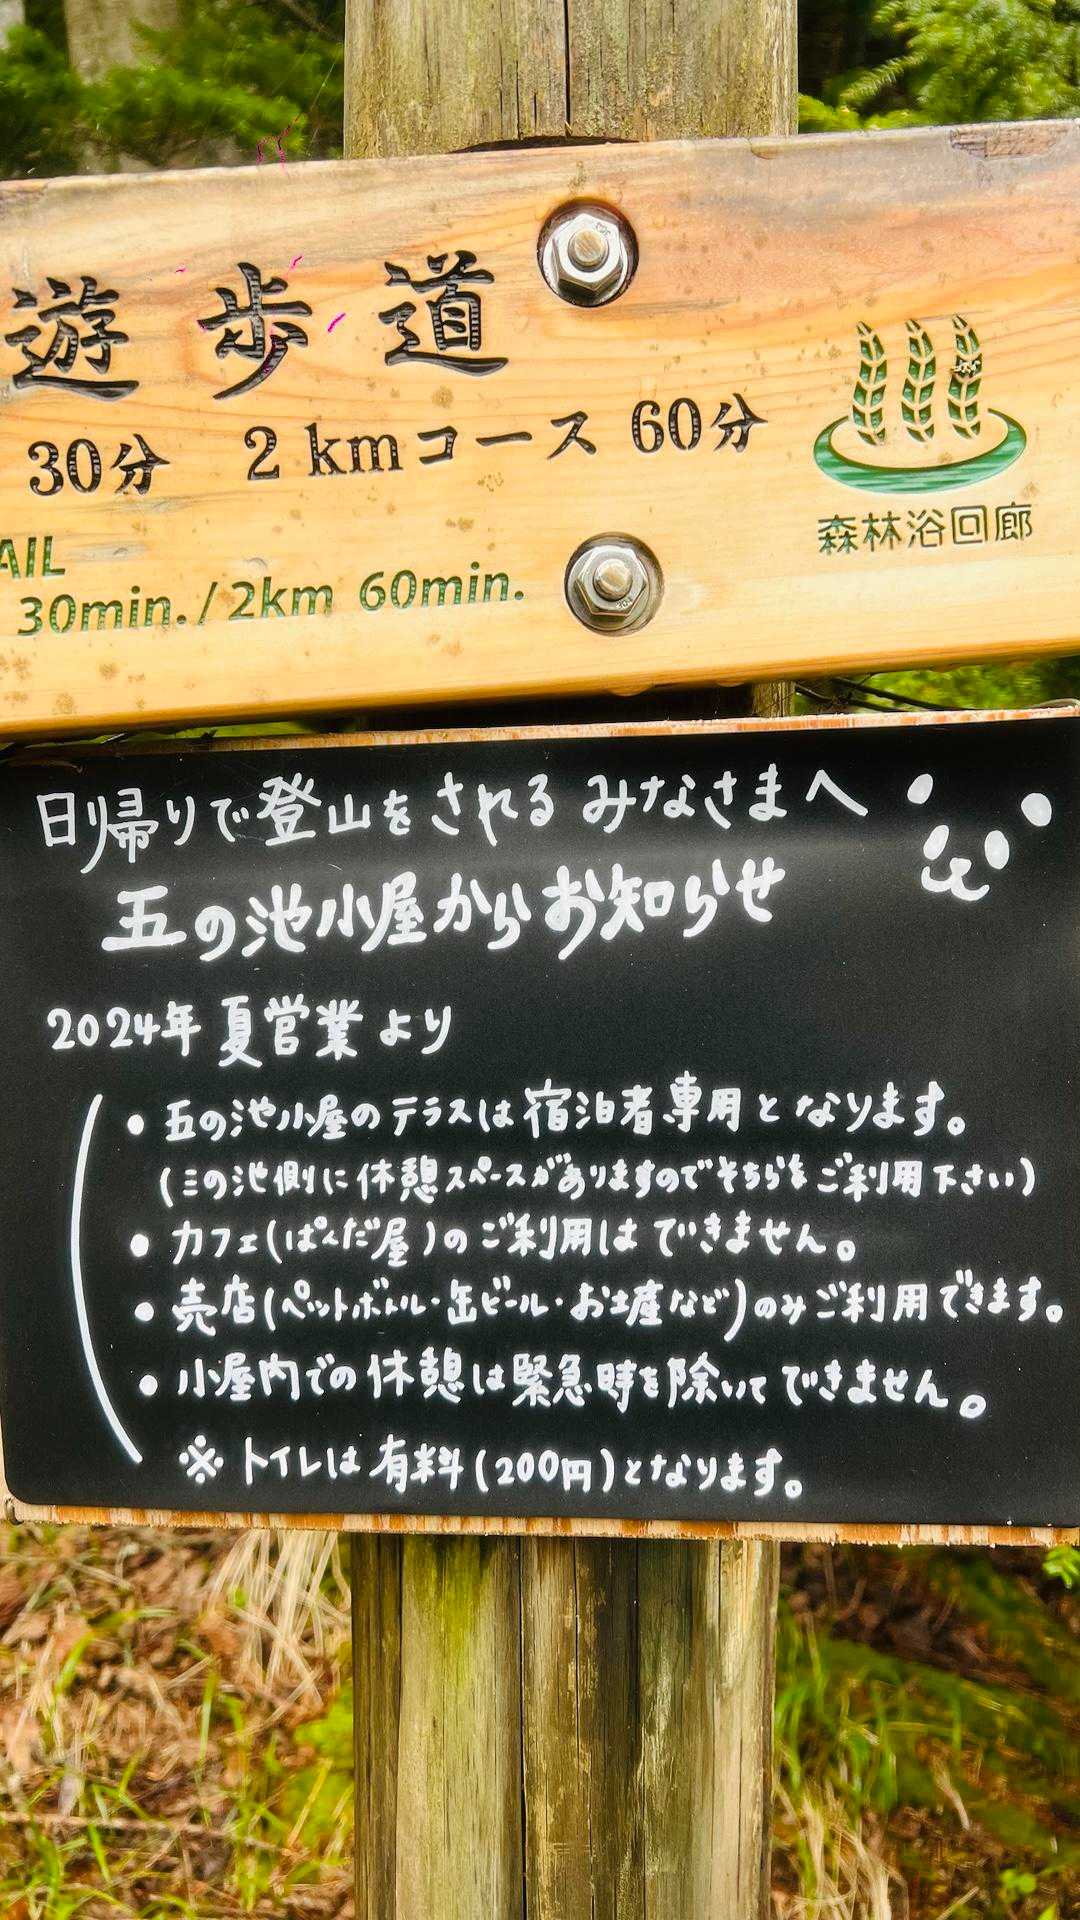 遊歩道
30分 2kmコース 60分
森林浴回廊
AIL
30min. / 2km 60min.
日帰りで登山をされるみなさまへ
五の池小屋からお知らせ
2024年 夏営業より
• 五の池小屋のテラスは宿泊者専用となります。
(三の池側に休憩スペースがありますのでそちらをご利用下さい)
• カフェ(ぱんだ屋)のご利用はできません。
• 売店(ペットボトル・缶ビール・お土産など)のみご利用できます。
• 小屋内での休憩は緊急時を除いてできません。
※ トイレは有料(200円)となります。